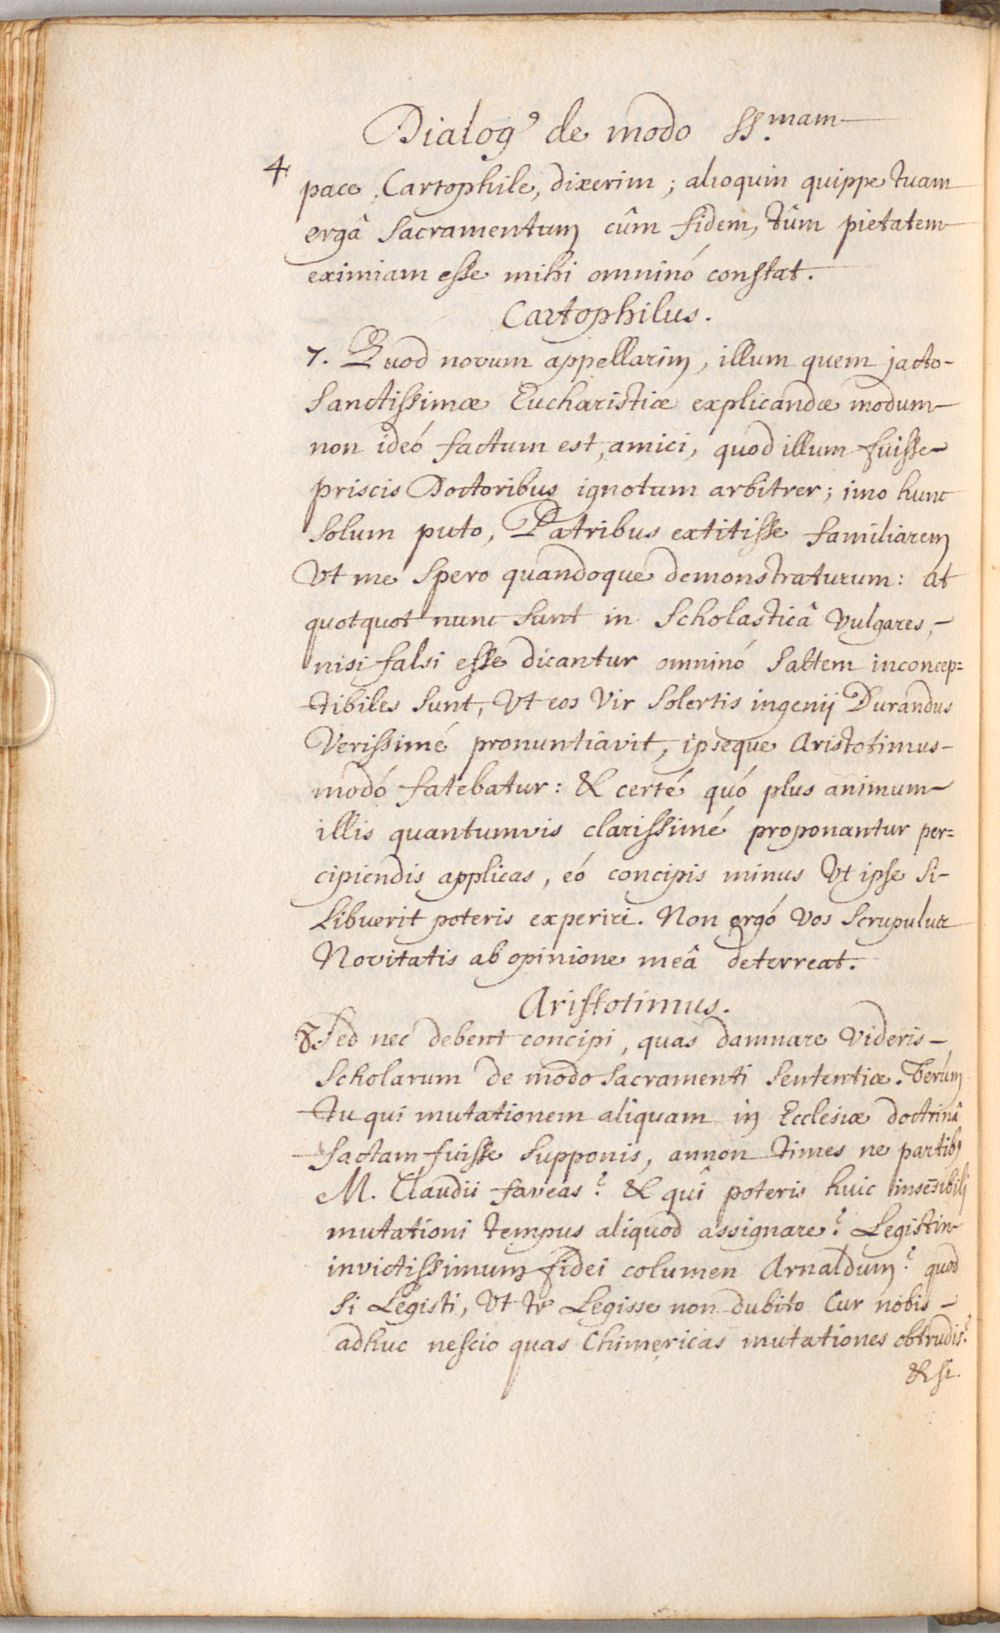 Dialog⁹ de modo SS.mam
4
pace, Cartophile, dixerim; alioquin quippe tuam
ergâ Sacramentum cûm fidem, tûm pietatem
eximiam esse mihi omninó constat.
Cartophilus.
7. Quod novum appellarim, illum quem jacto
Sanctissimæ Eucharistiæ explicandæ modum
non ideó factum est, amici, quod illum fuisse
priscis Doctoribus ignotum arbitrer; imo hunc
Solum puto, Patribus extitisse familiarem
Ut me Spero quandoque demonstraturum: At
quotquot nunc Sunt in Scholasticâ Vulgares,
nisi falsi esse dicantur omninó Saltem inconcep=
tibiles Sunt, Ut eos Vir Solertis ingenij Durandus
Verissimé pronuntiavit, ipseque Aristotimus
modó fatebatur: & certé quó plus animum
illis quantumvis clarissimé proponantur per=
cipiendis applicas, eó concipis minus Ut ipse Si
Libuerit poteris experiri. Non ergó Vos Scrupulus
Novitatis ab opinione meâ deterreat.
Aristotimus.
8. Sed nec debent concipi, quas damnare Videris
Scholarum de modo Sacramenti Sententiæ. Verúm
Tu qui mutationem aliquam in Ecclesiæ doctrinâ
factam fuisse Supponis, annon times ne partibꝫ
M. Claudii faveas? & quî poteris huic insēsibili
mutationi tempus aliquod assignare? Legistin
invictissimum fidei columen Arnaldum? quod
Si Legisti, Ut te Legisse non dubito Cur nobis
adhuc nescio quas Chimericas mutationes obtrudis?
& si.